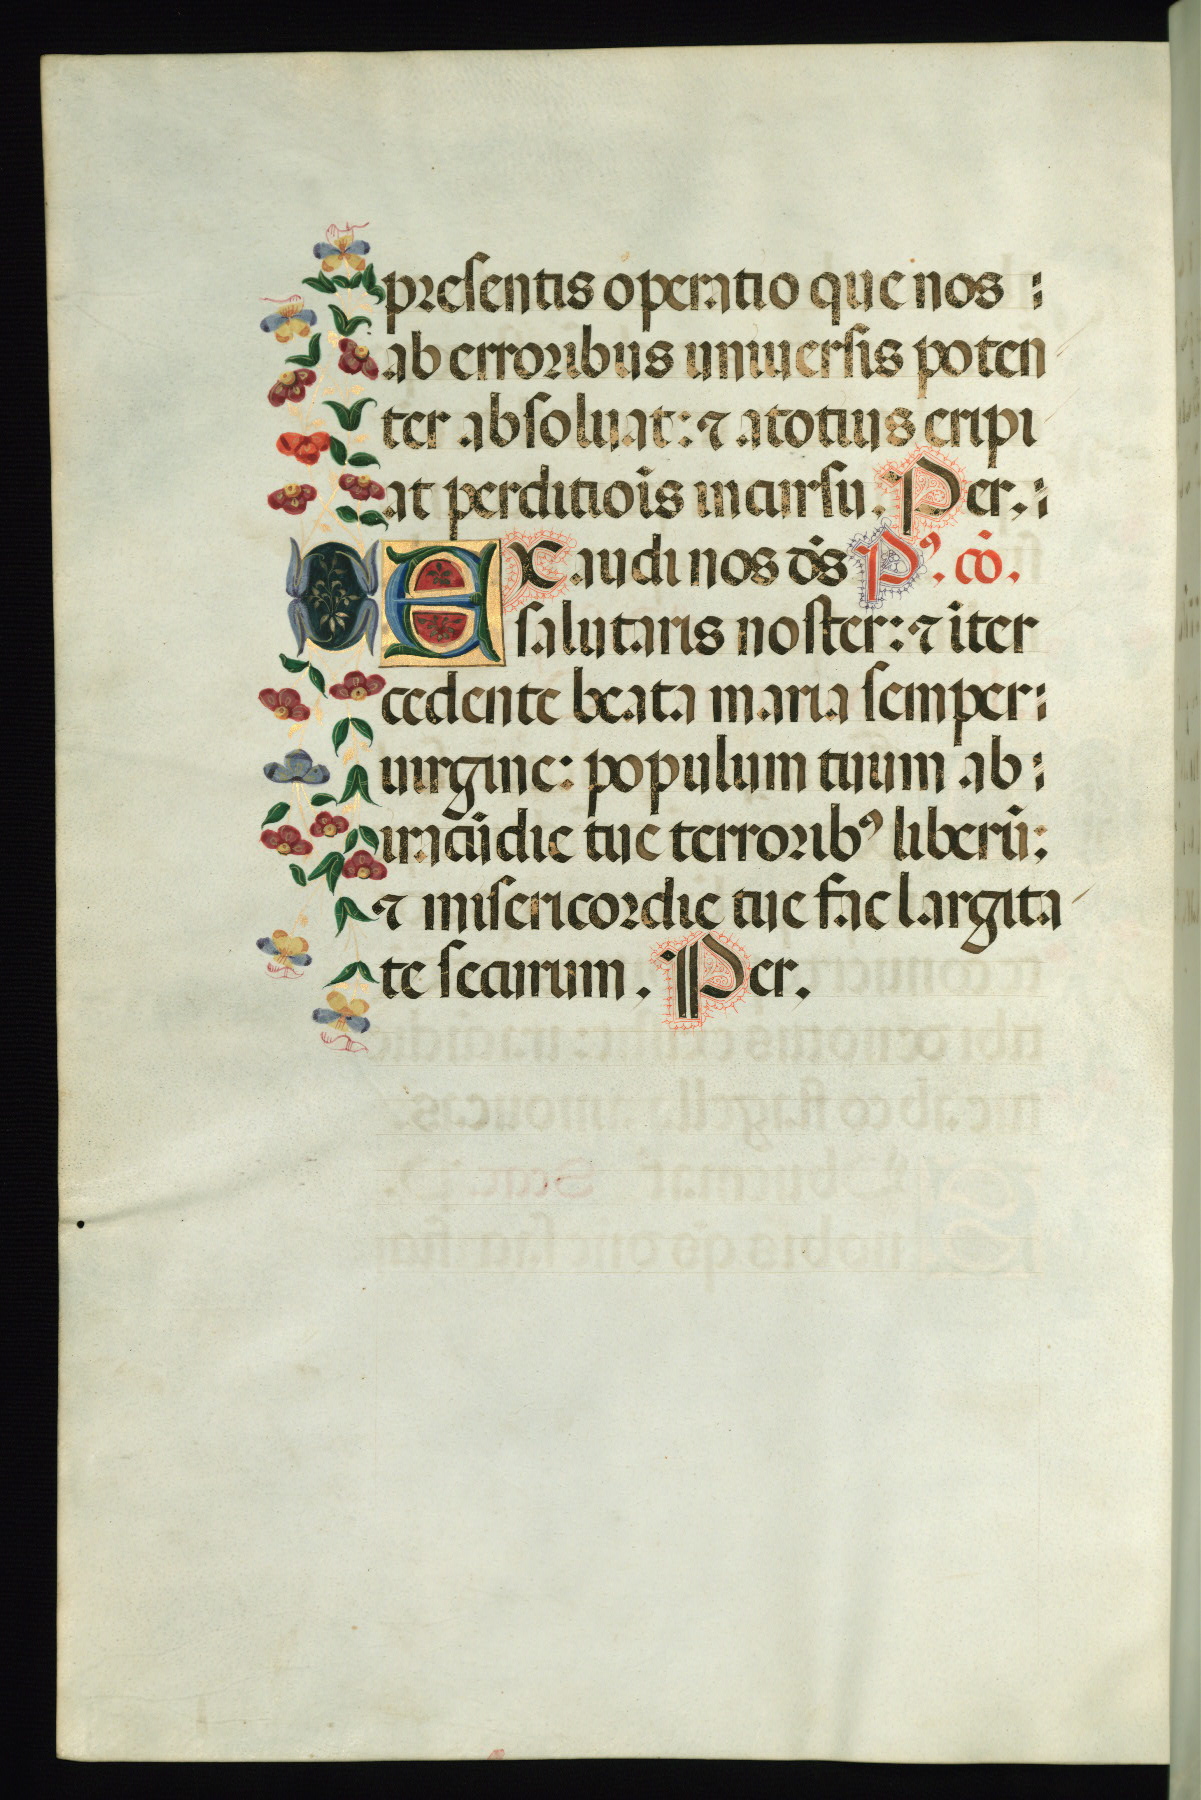 presentis operatio que nos :
ab erroribus uniuersis poten
ter absoluat: ⁊ a totius eripi
at perditiōis incursu. Per. :
EXaudi nos d̄s Pꝰ. cō.
salutaris noster: ⁊ īter
cedente beata maria semper :
uirgine: populum tuum ab :
iracūdie tue terroribꝰ liberū :
⁊ misericordie tue fac largita
te securum. Per.